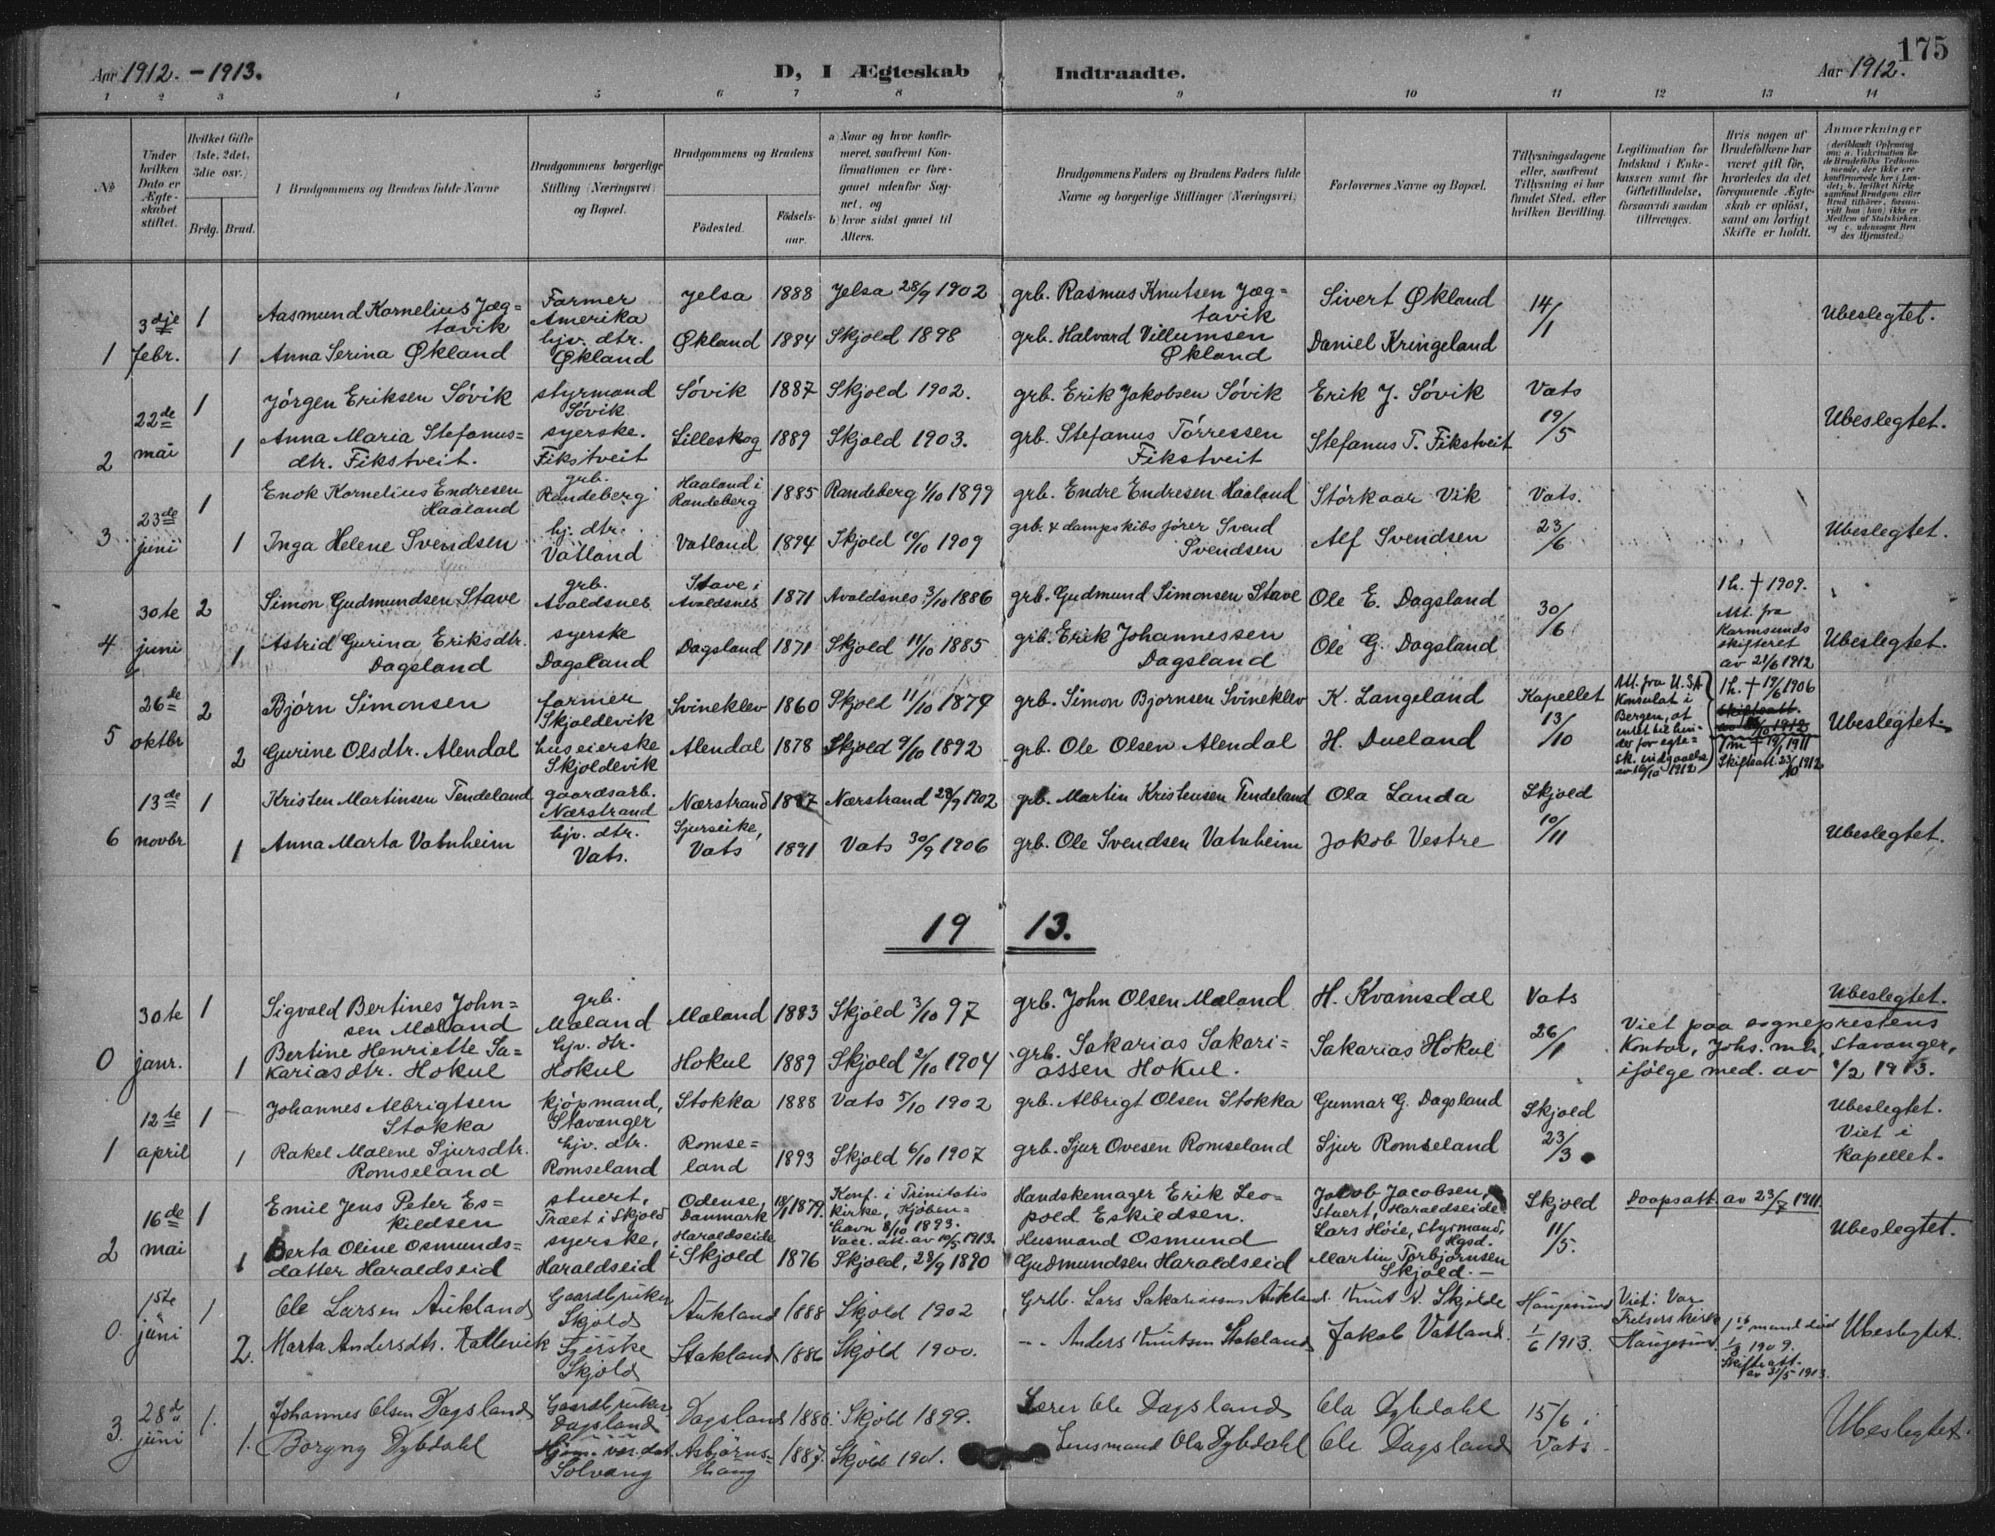 175
Aar 1912. - 1913.
D, I Ægteskab Indtraadte.
Aar 1912.
1 2 3 4 5 6 7 8 9 10 11 12 13 14
№
Under hvilken Dato er Ægteskabet stiftet.
Hvilket Gifte (1ste, 2det, 3die osv.)
Brdg. Brud.
1 Brudgommens og Brudens fulde Navne
Brudgommens borgerlige Stilling (Næringsvei) og Bopæl.
Brudgommens og Brudens
Fødested. Fødselsaar.
a) Naar og hvor konfirmeret, saafremt Konfirmationen er foregaaet udenfor Sognet, og
b) hvor sidst gaaet til Alters.
Brudgommens Faders og Brudens Faders fulde Navne og borgerlige Stillinger (Næringsvei)
Forlovernes Navne og Bopæl.
Tillysningsdagene eller, saafremt Tillysning ei har fundet Sted, efter hvilken Bevilling.
Legitimation for Indskud i Enkekassen samt for Giftetilladelse, forsaavidt saadan tiltrænges.
Hvis nogen af Brudefolkene har været gift før, hvorledes da det foregaaende Ægteskab er opløst, samt om lovligt Skifte er holdt.
Anmærkninger
1 3dje febr. 1
Aasmund Kornelius Jægtavik
Farmer Amerika
Jelsa 1888 Jelsa 28/9 1902
grb. Rasmus Knutsen Jægtavik
Sivert Økland
14/1
Ubeslegtet.
1 Anna Serina Økland
hjv. dtr. Økland
Økland 1884 Skjold 1898
grb. Halvard Villumsen Økland
Daniel Kringeland
2 22de mai 1
Jörgen Eriksen Sövik
styrmand Sövik
Sövik 1887 Skjold 1902.
grb. Erik Jakobsen Sövik
Erik J. Sövik
Vats 19/5
Ubeslegtet.
1 Anna Maria Stefanusdtr. Fikstveit.
syerske. Fikstveit
Lilleskog 1889 Skjold 1903.
grb. Stefanus Törressen Fikstveit
Stefanus T. Fikstveit
3 23de juni 1
Enok Kornelius Endresen Haaland
grb. Randeberg
Haaland i Randeberg 1885 Randeberg 1/10 1899
grb. Endre Endresen Haaland
Störkaar Vik
Vats. 23/6
Ubeslegtet.
1 Inga Helene Svendsen
hj. dtr. Vatland
Vatland 1894 Skjold 10/10 1909
grb. & dampskibsförer Svend Svendsen
Alf Svendsen
4 30te juni 2
Simon Gudmundsen Stave
grb. Avaldsnes
Stave i Avaldsnes 1871 Avaldsnes 3/10 1886
grb. Gudmund Simonsen Stave
Ole E. Dagsland
30/6
1 h. † 1909. Att. fra Karmsunds skifteret av 21/6 1912
Ubeslegtet.
1 Astrid Gurina Eriksdtr. Dagsland
syerske Dagsland
Dagsland 1871 Skjold 11/10 1885
grb. Erik Johannessen Dagsland
Ole G. Dagsland
5 26de oktbr 2
Bjørn Simonsen
farmer Skjoldevik
Svineklev 1860 Skjold 11/10 1874
grb. Simon Bjornsen Svineklev
K. Langeland
Kapellet 13/10
Att. fra U.S.A Konsulat i Bergen, at intet til hinder for egtesk. indgaaelse av 16/10 1912
1 h. † 19/6 1906
1 m † 19/1 1911 Skiftsatt. 23/10 1912
Ubeslegtet.
2 Gurine Olsdtr. Alendal
huseierske Skjoldevik
Alendal 1878 Skjold 9/10 1892
grb. Ole Olsen Alendal
H. Dueland
6 13de novbr 1
Kristen Martinsen Tendeland
gaardsarb. Nærstrand
Nærstrand 1887 Nærstrand 28/9 1902
grb. Martin Kristensen Tendeland
Ola Landa
Skjold 10/11
Ubeslegtet.
1 Anna Marta Vatnheim
hjv. dtr. Vats.
Sjurseike, Vats 1891 Vats 30/9 1906
grb. Ole Svendsen Vatnheim
Jakob Vestre
19 13.
0 30te janr. 1
Sigvald Bertines Johnsen Mæland
grb. Mæland
Mæland 1883 Skjold 3/10 97
grb. John Olsen Mæland
H. Kvamsdal
Vats 26/1
Ubeslegtet.
Viet paa sogneprestens kontor, Johs. mh, Stavanger, ifølge med. av 4/2 1913.
1 Bertine Henriette Sakariasdtr. Hokul
hjv. dtr. Hokul
Hokul 1889 Skjold 2/10 1904
grb. Sakarias Sakariassen Hokul.
Sakarias Hokul
1 12te april 1
Johannes Albrigtsen Stokka
kjöpmand, Stavanger
Stokka 1888 Vats 5/10 1902
grb. Albrigt Olsen Stokka
Gunnar G. Dagsland
Skjold 23/3
Ubeslegtet. Viet i kapellet.
1 Rakel Malene Sjursdtr. Romseland
hjv. dtr. Romseland
Romseland 1893 Skjold 6/10 1907
grb. Sjur Ovesen Romseland
Sjur Romseland
2 16de mai 1
Emil Jens Peter Eskildsen
stuert, Træet i Skjold
Odense, Danmark 18/1 1879.
Konf. i Trinitatis kirke, Kjöbenhavn 8/10 1893. Vacc. att. av 10/5 1913.
Handskemager Erik Leopold Eskildsen.
Jacob Jacobsen, Stuert, Haraldseide.
Lars Höie, Styrmand, Hgsd.
Skjold 11/5.
Daapsatt. av 23/7 1911.
Ubeslegtet.
1 Berta Oline Osmundsdatter Haraldseid
syerske, Haraldseid
Haraldseide i Skjold 1876 Skjold, 28/9 1890
Husmand Osmund Gudmundsen Haraldseid
Martin Torbjörnsen Skjold.
0. 1ste juni 1
Ole Larsen Aukland
Gaardbruker Skjold
Aukland 1888 Skjold 1902
Grdb. Lars Sakariassen Aukland.
Knut N. Skjölde
Haugesund 1/6 1913.
Viet i Vor Frelsers kirke Haugesund.
1ste mand død 1/8 1909. Skifteatt. av 31/5 1913.
Ubeslegtet.
2. Marta Andersdtr.
Syerske Skjold
Stakland 1886 Skjold 1900.
Anders Knutsen Stakland
Jakob Vatland.
3. 28d juni 1.
Johannes Olsen Dagsland
Gaardbruker Dagsland
Dagsland 1886 Skjold 1899.
Lærer Ole Dagsland
Ola Dybdahl
15/6 i Vats.
Ubeslegtet.
1. Borgny Dybdahl
Solvang
1887. Skjold 1901.
Lensmand Ola Dybdahl
Ole Dagsland